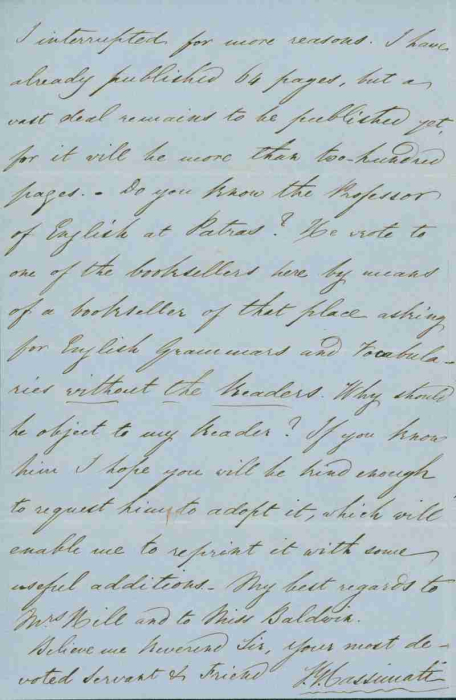 I interrupted for more reasons. I have
already published 64 pages, but a
vast deal remains to be published yet,
for it will be more than two-hundred
pages. - Do you know the Professor
of English at Patras? He wrote to
one of the booksellers here by means
of a bookseller of that place asking
for English Grammars and Vocabula-
ries without the Readers. Why should
he object to my Reader? If you know
him I hope you will be kind enough
to request him to adopt it, which will
enable me to reprint it with some
useful additions - My best regards to
Mrs Hill and to Miss Baldwin.
Believe me Reverend Sir, your most de-
voted Servant & Friend